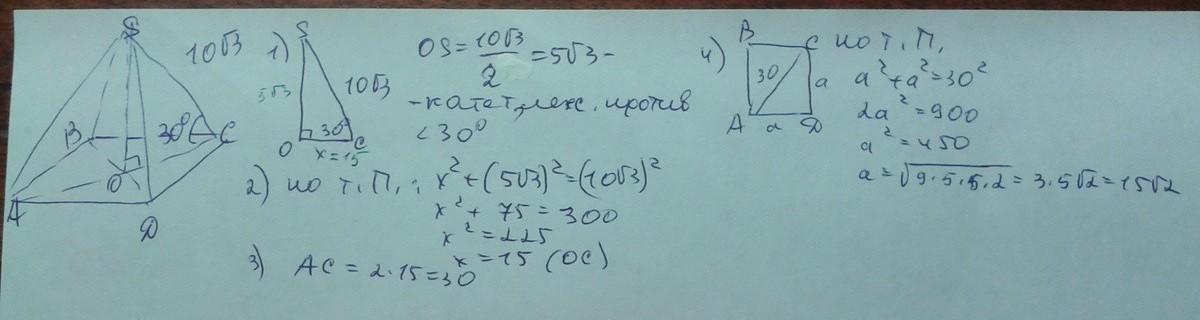 S
10√3
B
30°
C
O
A
D
1)
S
5√3
10√3
30°
O
C
x=15
OS = 10√3/2 = 5√3 -
- катет, леж. против
< 30°
2) по т. П.: x² + (5√3)² = (10√3)²
x² + 75 = 300
x² = 225
x = 15 (OC)
3) AC = 2·15 = 30
4)
B
C
30
a
A
a
D
по т. П.
a² + a² = 30²
2a² = 900
a² = 450
a = √9·5·5·2 = 3·5√2 = 15√2